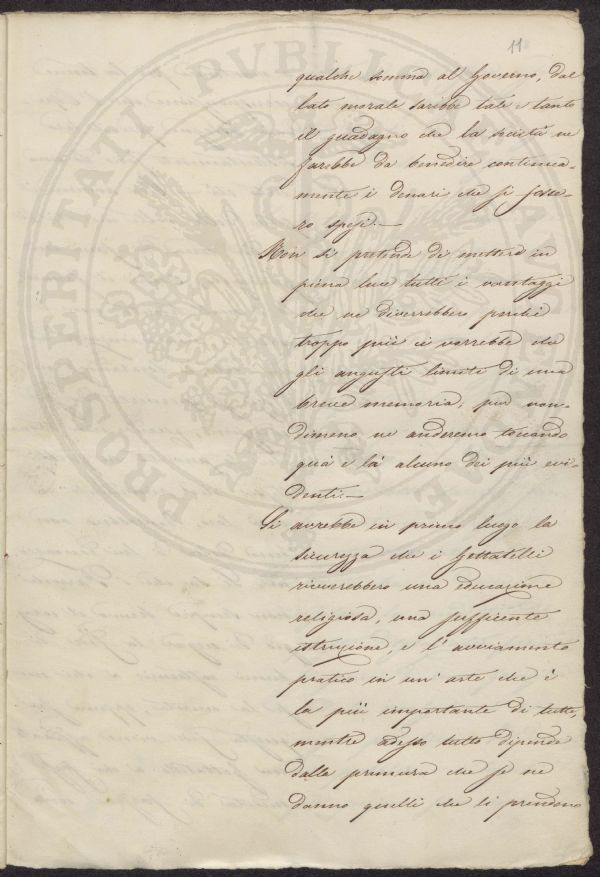 11
qualche somma al Governo, dal
lato morale sarebbe tale e tanto
il guadagno che la società ne
farebbe da benedire continua-
mente i denari che si fosse-
ro spesi.—
Non si pretende di mettere in
piena luce tutti i vantaggi
che ne diverrebbero perchè
troppo più ci vorrebbe che
gli angusti limiti di una
breve memoria; pur non-
dimeno ne anderemo toccando
quà e là alcuno dei più evi-
denti.—
Si avrebbe in primo luogo la
sicurezza che i Gettatelli
riceverebbero una educazione
religiosa, una sufficente
istruzione, e l'avviamento
pratico in un'arte che è
la più importante di tutte,
mentre adesso tutto dipende
dalla premura che se ne
danno quelli che li prendono
PROSPERITATI PVBLICAE